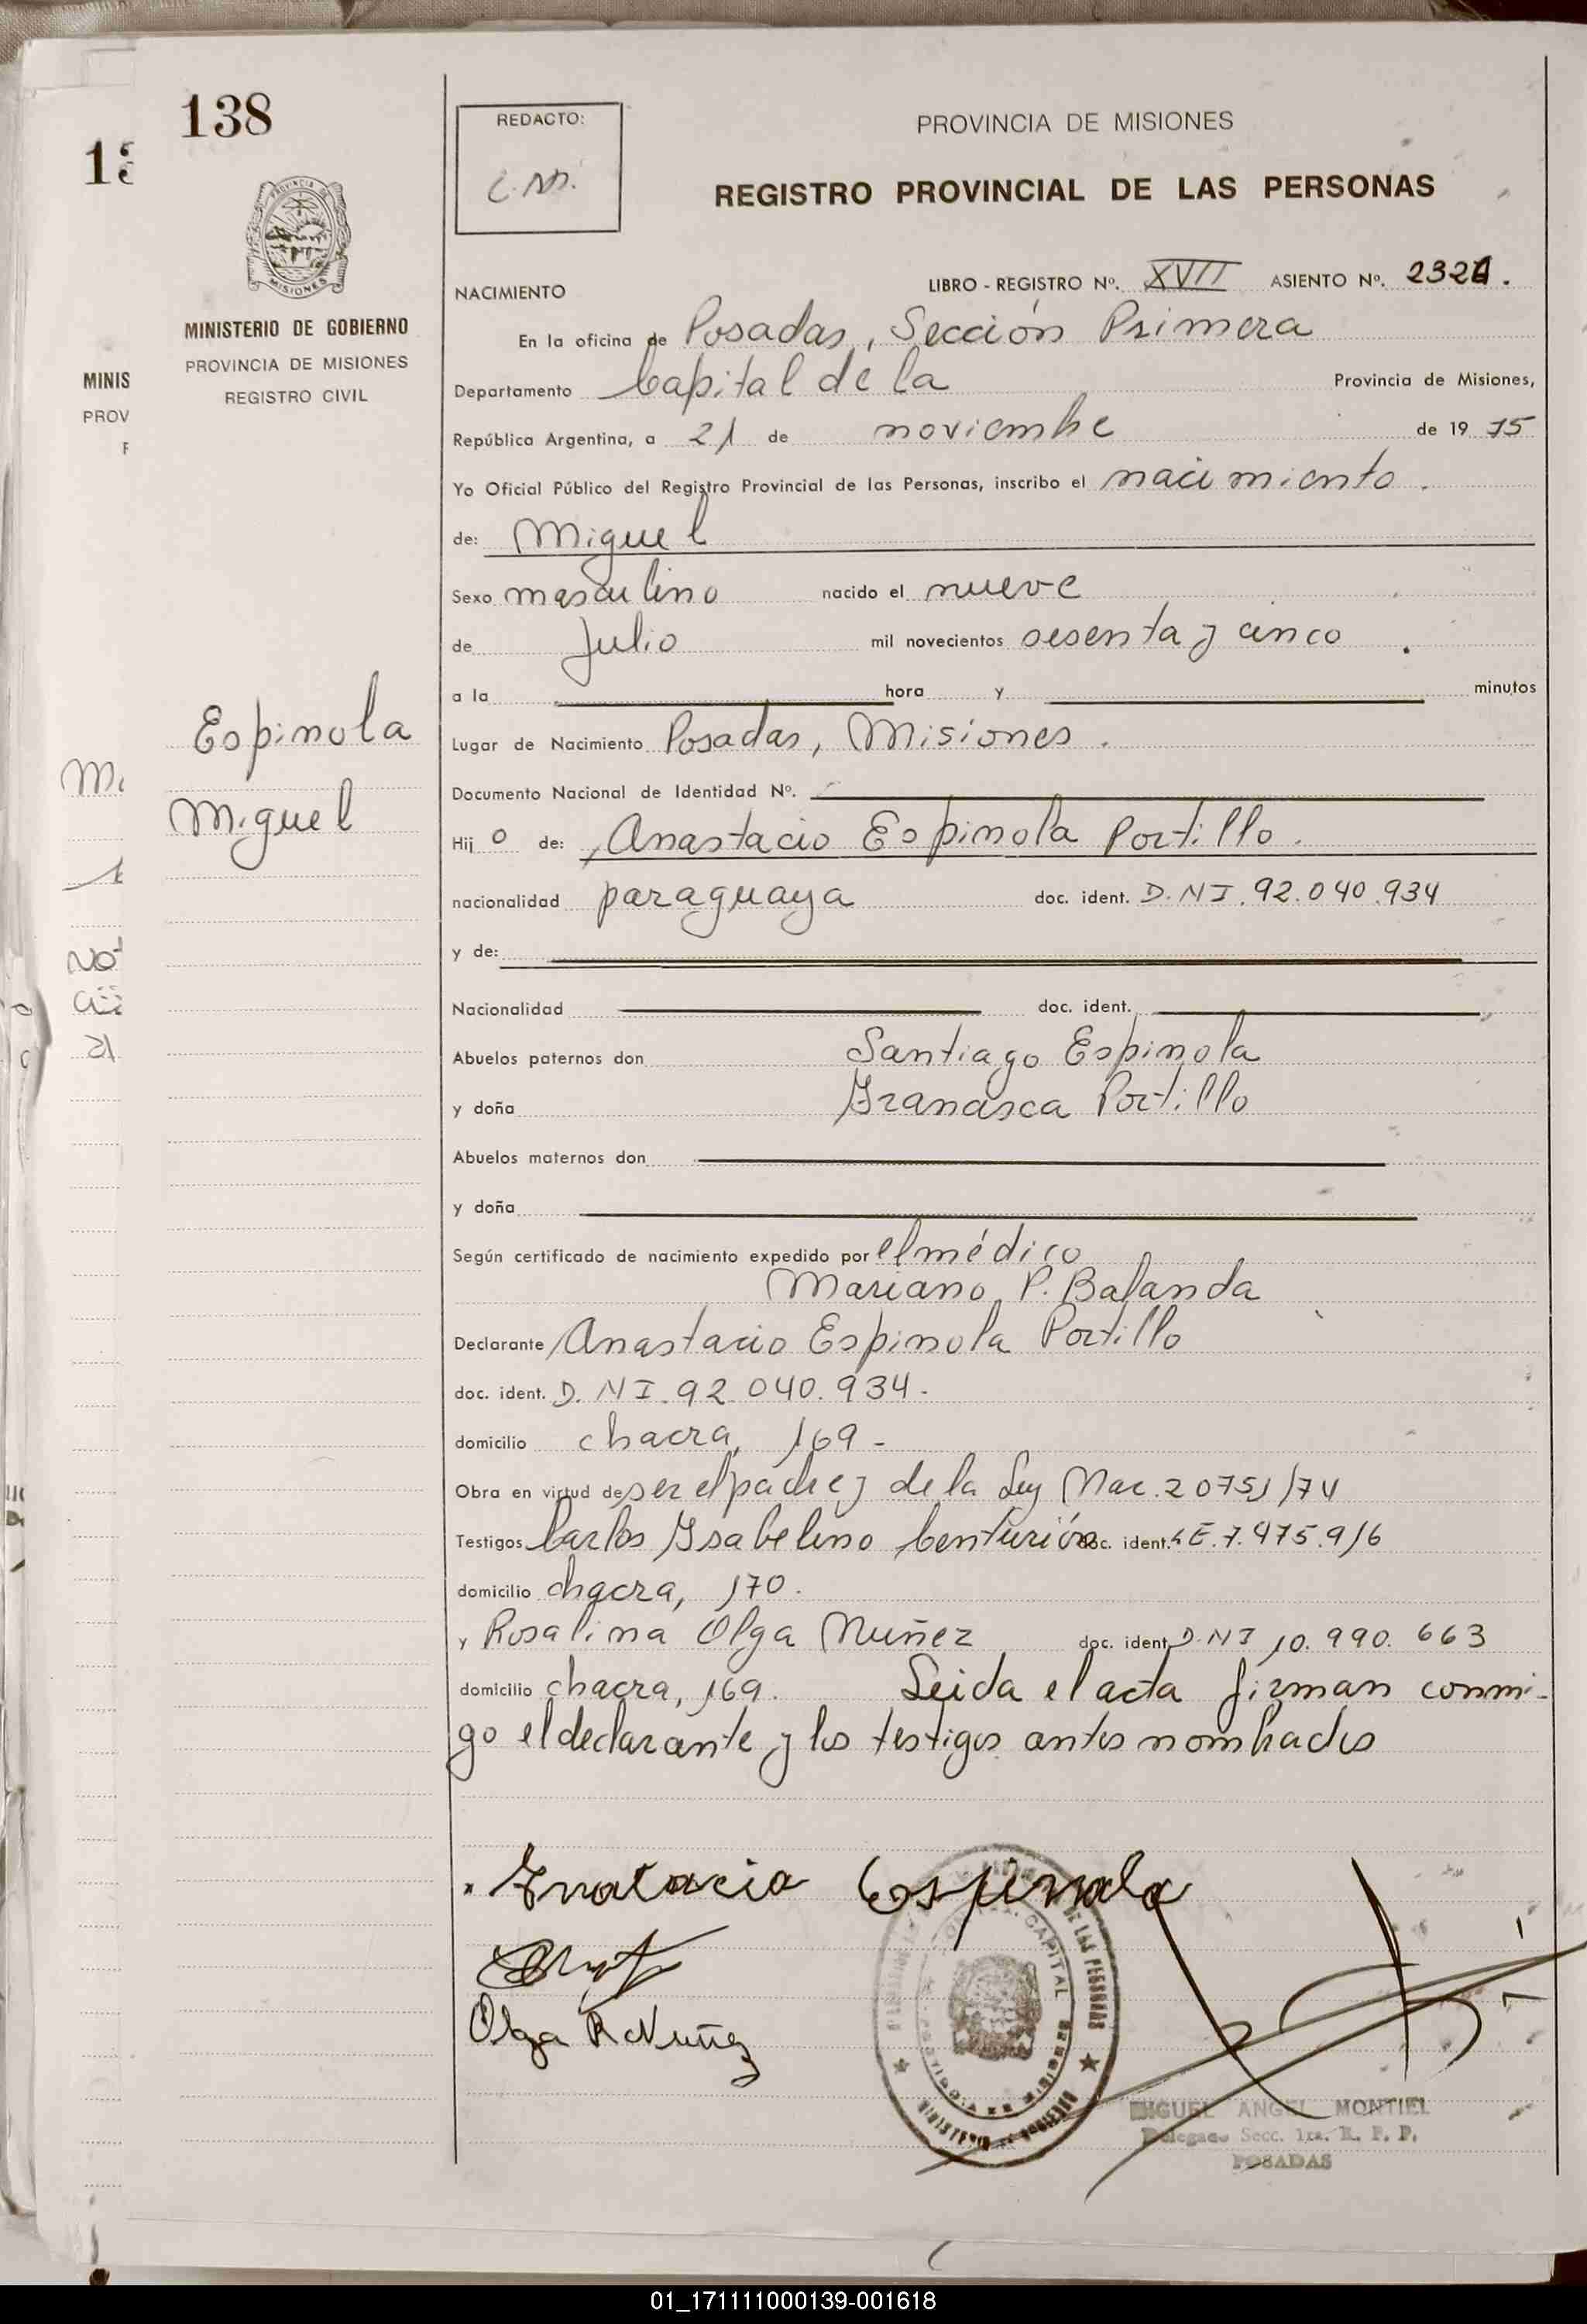 138
REDACTO:
C.M.
PROVINCIA DE MISIONES
REGISTRO PROVINCIAL DE LAS PERSONAS
MISIONES
MINISTERIO DE GOBIERNO
PROVINCIA DE MISIONES
REGISTRO CIVIL
NACIMIENTO
LIBRO - REGISTRO Nº. XVII ASIENTO Nº.
En la oficina de Posadas, Sección Primera
Departamento Capital de la Provincia de Misiones,
República Argentina, a 21 de noviembre de 19 75
Yo Oficial Público del Registro Provincial de las Personas, inscribo el nacimiento.
de: Miguel
Sexo masculino nacido el nueve
de Julio mil novecientos sesenta y cinco.
a la hora y minutos
Espinola
Miguel
Lugar de Nacimiento Posadas, Misiones.
Documento Nacional de Identidad Nº.
Hij o de: Anastacio Espinola Portillo.
nacionalidad paraguaya doc. ident. D.NI. 92.040.934
y de:
Nacionalidad doc. ident.
Abuelos paternos don Santiago Espinola
y doña Portillo
Abuelos maternos don
y doña
Según certificado de nacimiento expedido por el médico
Mariano P. Balanda
Declarante Anastacio Espinola Portillo
doc. ident. D.NI. 92.040.934-
domicilio chacra, 169-
Obra en virtud de ser el padre y de la Ley Nac. 20751/74
Testigos Carlos Ysabelino Centurión doc. ident. LE. 7.475.916
domicilio chacra, 170.
y Rosalina Olga Nuñez doc. ident. D.NI 10.990.663
domicilio chacra, 169. Leida el acta firman conmi-
go el declarante y los testigos antes nombrados
Espinola
Olga R Nuñez
CAPITAL
DE LAS PERSONAS
MIGUEL ANGEL MONTIEL
Delegado Secc. 1ra. R. P. P.
POSADAS
01_171111000139-001618